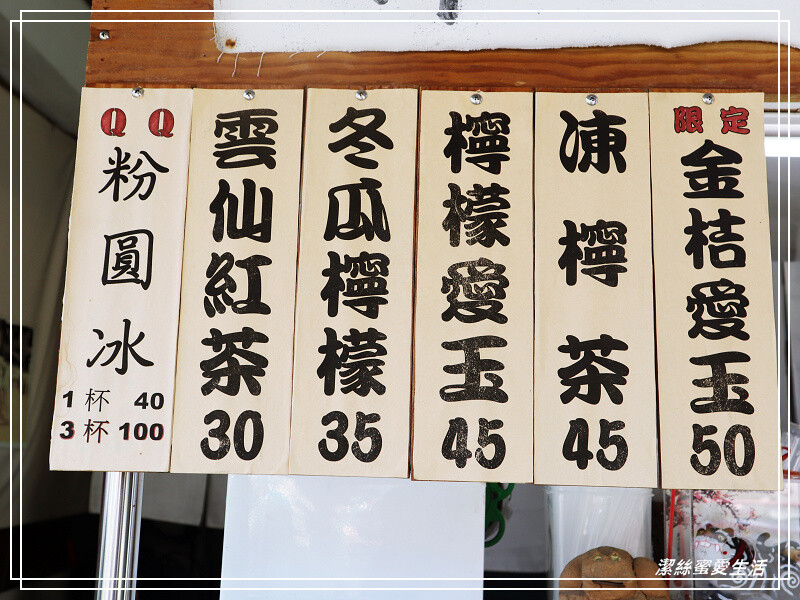 QQ
粉圓冰
1杯 40
3杯 100
雲仙紅茶
30
冬瓜檸檬
35
檸檬愛玉
45
凍檸茶
45
限定
金桔愛玉
50
潔絲蜜愛生活